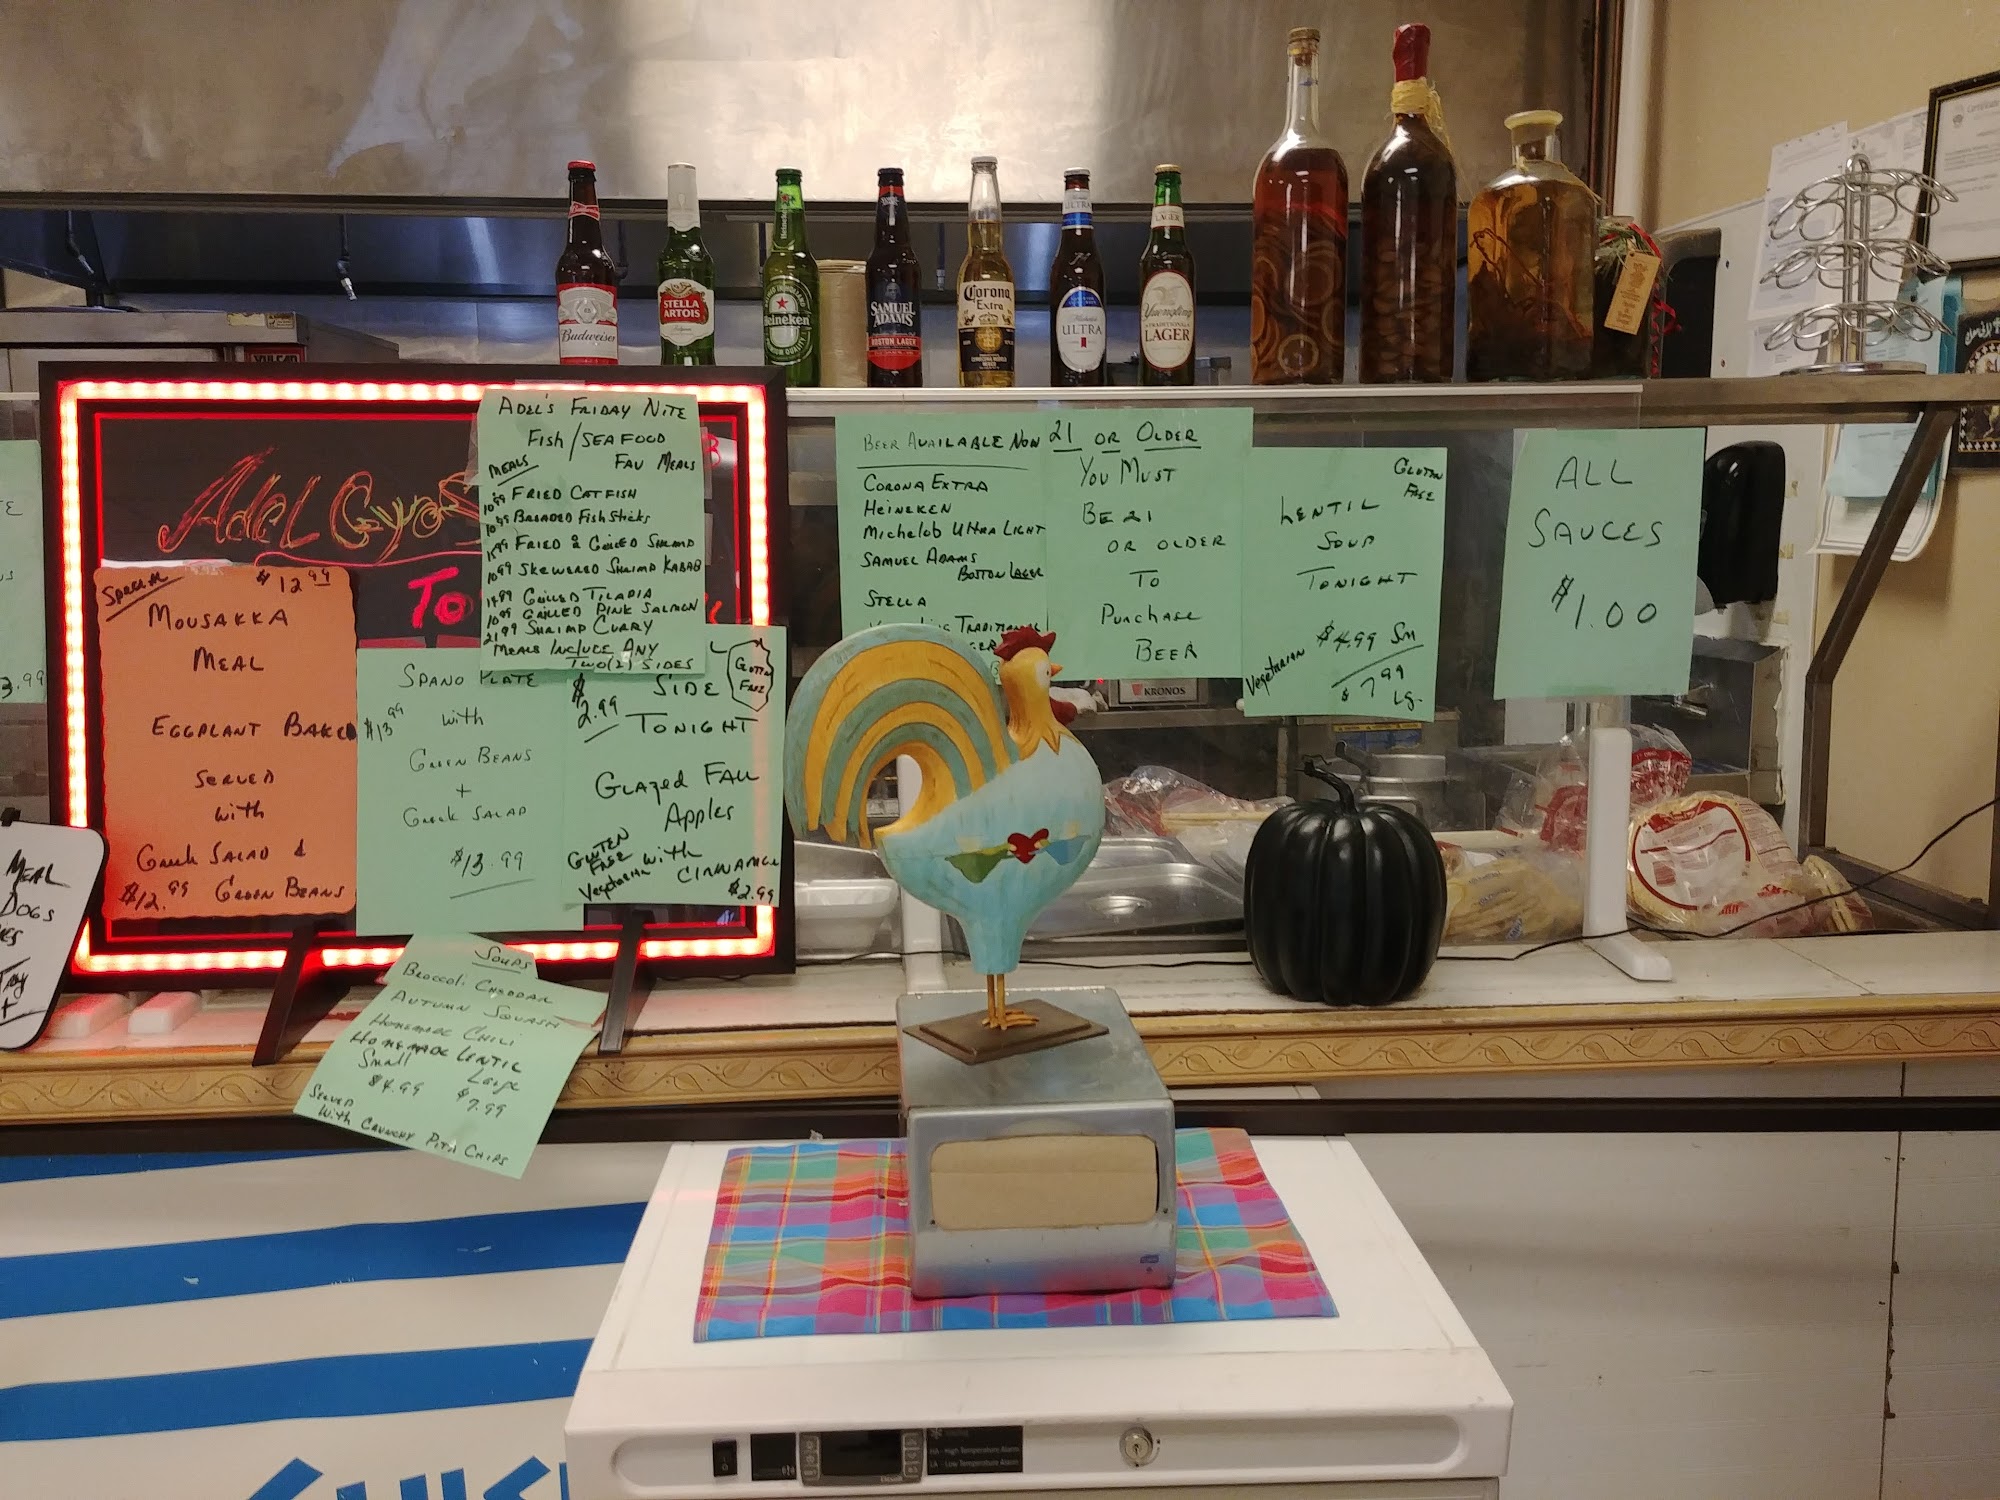 Budweiser
STELLA
ARTOIS
Heineken
Heineken
SAMUEL
ADAMS
BOSTON LAGER
Corona
Extra
ULTRA
ULTRA
LAGER
Yuengling
TRADITIONAL
LAGER
Adel Gyros
To
Special $12.99
MOUSAKKA
MEAL
EGGPLANT BAKED
SERVED
with
Greek SALAD &
$12.99 GREEN BEANS
SPANO PLATE
$13.99 with
GREEN BEANS
+
Greek SALAD
$13.99
ADEL'S FRIDAY NITE
FISH/SEAFOOD
MEALS FAV MEALS
10.99 FRIED CATFISH
10.99 BREADED FISH STICKS
15.99 FRIED & GRILLED SHRIMP
10.99 SKEWERED SHRIMP KABAB
14.99 GRILLED TILAPIA
10.99 GRILLED PINK SALMON
21.99 SHRIMP CURRY
MEALS INCLUDE ANY
TWO (2) SIDES
$2.99 SIDE GLUTEN FREE
TONIGHT
GLAZED FALL
Apples
GLUTEN
FREE
Vegetarian with CINNAMON
$2.99
SOUPS
BROCCOLI CHEDDAR
AUTUMN SQUASH
HOMEMADE CHILI
HOMEMADE LENTIL
Small Large
$4.99 $7.99
SERVED
with CRUNCHY PITA CHIPS
BEER AVAILABLE NOW
CORONA EXTRA
HEINEKEN
Michelob Ultra Light
SAMUEL ADAMS
BOSTON LAGER
STELLA
TRADITIONAL
21 OR OLDER
YOU MUST
BE 21
OR OLDER
TO
PURCHASE
BEER
GLUTEN
FREE
LENTIL
SOUP
TONIGHT
Vegetarian $4.99 Sm
$7.99
Lg.
ALL
SAUCES
$1.00
KRONOS
3.99
MEAL
DOGS
HA - High Temperature Alarm
LA - Low Temperature Alarm